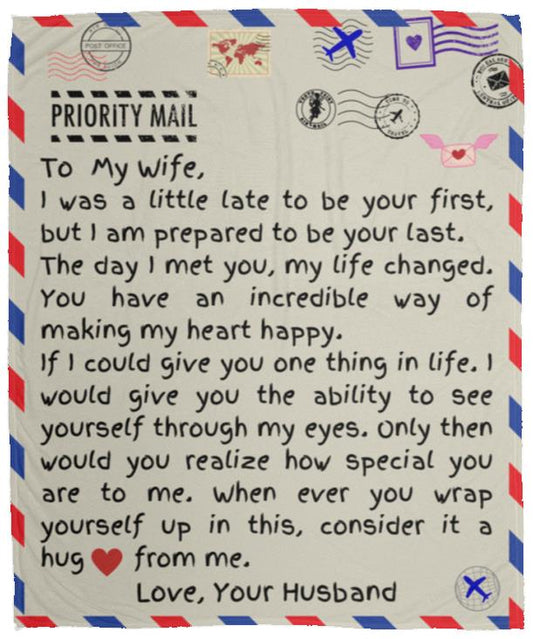 POST OFFICE
PRIORITY MAIL
To My Wife,
I was a little late to be your first,
but I am prepared to be your last.
The day I met you, my life changed.
You have an incredible way of
making my heart happy.
If I could give you one thing in life. I
would give you the ability to see
yourself through my eyes. Only then
would you realize how special you
are to me. When ever you wrap
yourself up in this, consider it a
hug from me.
Love, Your Husband